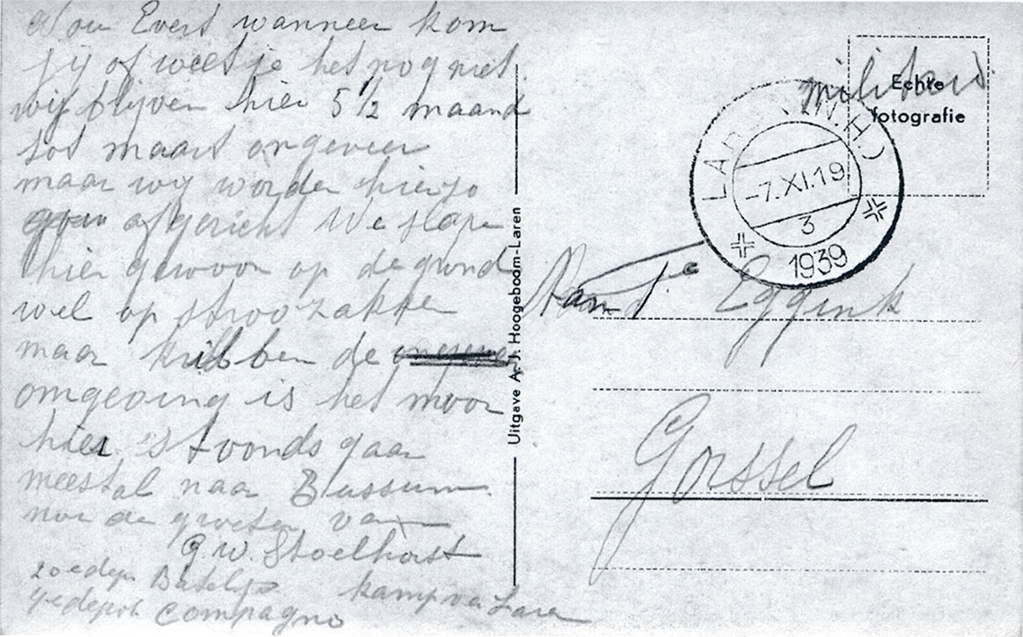 Nou Evert wanneer kom
jij of weet je het nog niet
wij blijven hier 5 1/2 maand
tot maart ongeveer
maar wij worden hier zo
afgericht We slape
hier gewoon op de grond
wel op stroo zakken
maar kribben de
omgeving is het mooi
hier 's avonds gaan
meestal naar Bussum
nou de groeten van
G.W. Stoelhorst
20e depot Batalj
4e depot Compagno
kamp van Laren
Uitgave A. J. Hoogeboom-Laren
Echte
fotografie
militair
LAREN (N.H.)
-7.XI.19
3
1939
Fam Eggink
Gorssel